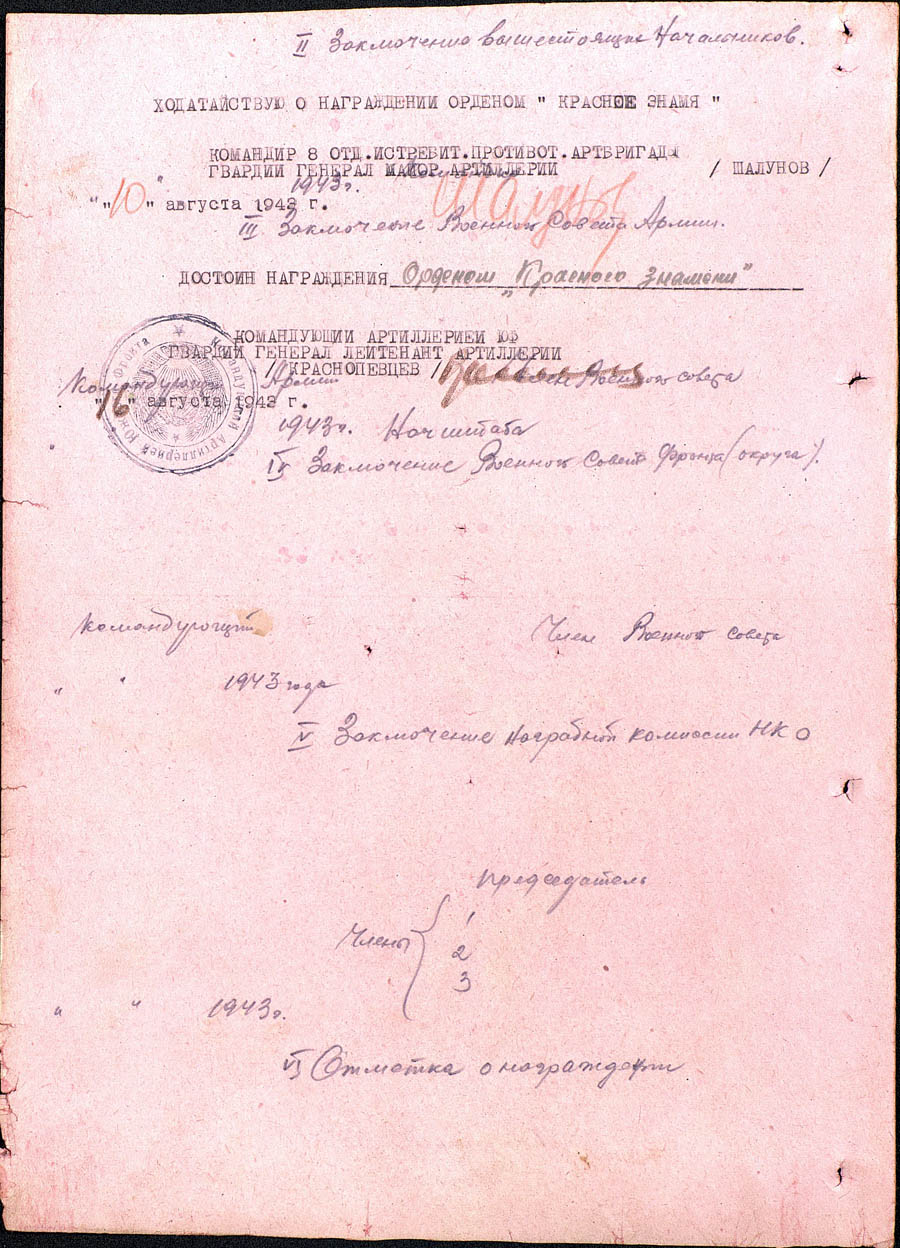 II Заключение вышестоящих Начальников.
ХОДАТАЙСТВУЮ О НАГРАЖДЕНИИ ОРДЕНОМ " КРАСНОЕ ЗНАМЯ "
КОМАНДИР 8 ОТД.ИСТРЕБИТ.ПРОТИВОТ.АРТБРИГАДЫ
ГВАРДИИ ГЕНЕРАЛ МАЙОР АРТИЛЛЕРИИ / ШАЛУНОВ /
1943г.
" 10 " августа 1943 г.
III Заключение Военного Совета Армии.
ДОСТОИН НАГРАЖДЕНИЯ Орденом „Красного знамени"
КОМАНДУЮЩИЙ АРТИЛЛЕРИЕЙ ЮФ
ГВАРДИИ ГЕНЕРАЛ ЛЕЙТЕНАНТ АРТИЛЛЕРИИ
/ КРАСНОПЕВЦЕВ /
Командующий Армии Член Военного совета
" 16 " августа 1943 г.
1943г. Нач штаба
IV Заключение Военного Совета Фронта (округа).
Командующий Член Военного совета
" " 1943 года
V Заключение наградной комиссии НКО
Председатель
Члены 1
2
3
" " 1943г.
VI Отметка о награждении
Командующий Артиллерией Фронта